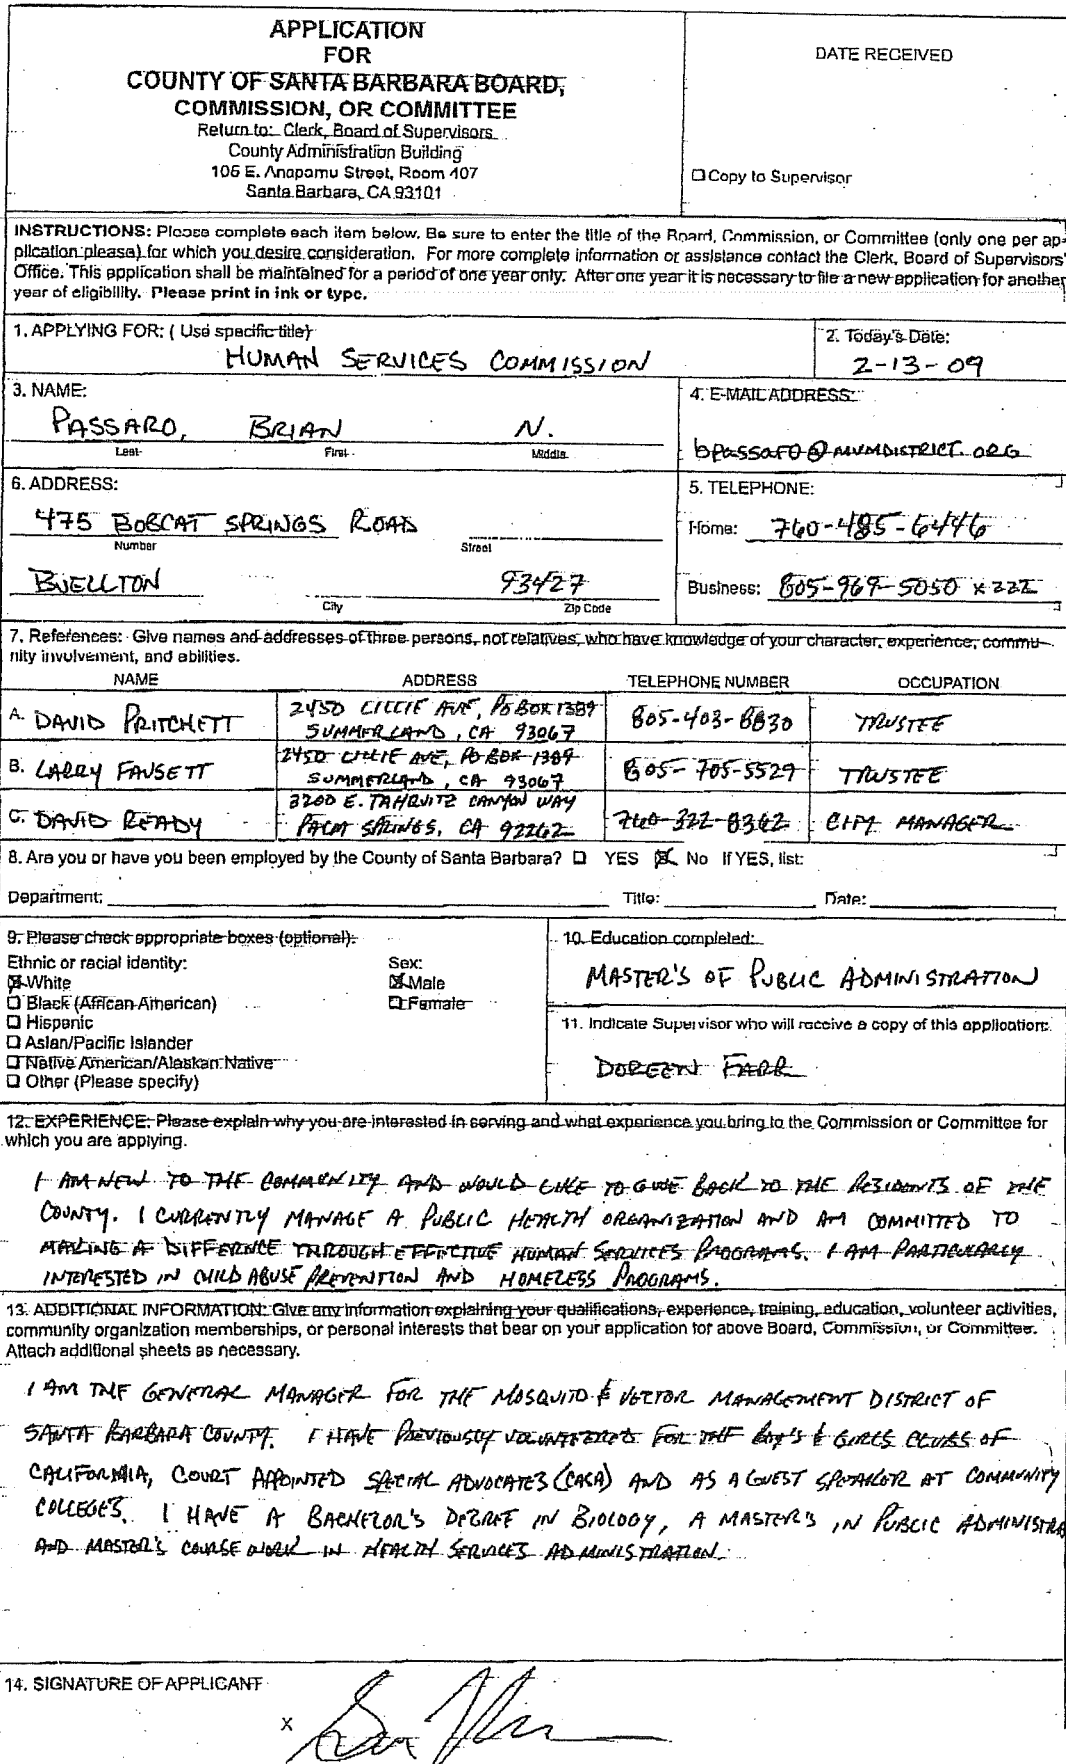 APPLICATION
FOR
COUNTY OF SANTA BARBARA BOARD,
COMMISSION, OR COMMITTEE
Return to: Clerk, Board of Supervisors
County Administration Building
105 E. Anapamu Street, Room 407
Santa Barbara, CA 93101
DATE RECEIVED
☐ Copy to Supervisor
INSTRUCTIONS: Please complete each item below. Be sure to enter the title of the Board, Commission, or Committee (only one per ap-
plication please) for which you desire consideration. For more complete information or assistance contact the Clerk, Board of Supervisors'
Office. This application shall be maintained for a period of one year only. After one year it is necessary to file a new application for another
year of eligibility. Please print in ink or type.
1. APPLYING FOR: ( Use specific title)
HUMAN SERVICES COMMISSION
2. Today's Date:
2-13-09
3. NAME:
PASSARO, BRIAN N.
Last First Middle
4. E-MAIL ADDRESS:
bpassaro@MVMDISTRICT.ORG
6. ADDRESS:
475 BOBCAT SPRINGS ROAD
Number Street
BUELLTON 93427
City Zip Code
5. TELEPHONE:
Home: 760-485-6446
Business: 805-969-5050 x222
7. References: Give names and addresses of three persons, not relatives, who have knowledge of your character, experience, commu-
nity involvement, and abilities.
NAME ADDRESS TELEPHONE NUMBER OCCUPATION
A. DAVID PRITCHETT 2450 LILLIE AVE, PO BOX 1389 805-403-8830 TRUSTEE
SUMMERLAND, CA 93067
B. LARRY FAUSETT 2450 LILLIE AVE, PO BOX 1389 805-705-5529 TRUSTEE
SUMMERLAND, CA 93067
C. DAVID READY 3200 E. TAHQUITZ CANYON WAY 760-322-8362 CITY MANAGER
PALM SPRINGS, CA 92262
8. Are you or have you been employed by the County of Santa Barbara? ☐ YES ☒ No If YES, list:
Department: Title: Date:
9. Please check appropriate boxes (optional):
Ethnic or racial identity: Sex:
☒ White ☒ Male
☐ Black (African American) ☐ Female
☐ Hispanic
☐ Asian/Pacific Islander
☐ Native American/Alaskan Native
☐ Other (Please specify)
10. Education completed:
MASTER'S OF PUBLIC ADMINISTRATION
11. Indicate Supervisor who will receive a copy of this application:
DOREEN FARR
12. EXPERIENCE: Please explain why you are interested in serving and what experience you bring to the Commission or Committee for
which you are applying.
I AM NEW TO THE COMMUNITY AND WOULD LIKE TO GIVE BACK TO THE RESIDENTS OF THE
COUNTY. I CURRENTLY MANAGE A PUBLIC HEALTH ORGANIZATION AND AM COMMITTED TO
MAKING A DIFFERNCE THROUGH EFFECTIVE HUMAN SERVICES PROGRAMS. I AM PARTICULARLY
INTERESTED IN CHILD ABUSE PREVENTION AND HOMELESS PROGRAMS.
13. ADDITIONAL INFORMATION: Give any information explaining your qualifications, experience, training, education, volunteer activities,
community organization memberships, or personal interests that bear on your application for above Board, Commission, or Committee.
Attach additional sheets as necessary.
I AM THE GENERAL MANAGER FOR THE MOSQUITO & VECTOR MANAGEMENT DISTRICT OF
SANTA BARBARA COUNTY. I HAVE PREVIOUSLY VOLUNTEERED FOR THE BOY'S & GIRLS CLUBS OF
CALIFORNIA, COURT APPOINTED SPECIAL ADVOCATES (CASA) AND AS A GUEST SPEAKER AT COMMUNITY
COLLEGES. I HAVE A BACHELOR'S DEGREE IN BIOLOGY, A MASTER'S IN PUBLIC ADMINISTRA
AND MASTER'S COURSE WORK IN HEALTH SERVICES ADMINISTRATION.
14. SIGNATURE OF APPLICANT
X